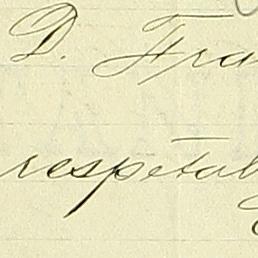 D. Fra
respetab